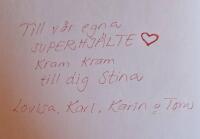 Till vår egna
SUPERHJÄLTE ♡
Kram Kram
till dig Stina
Lovisa, Karl, Karin & Tom